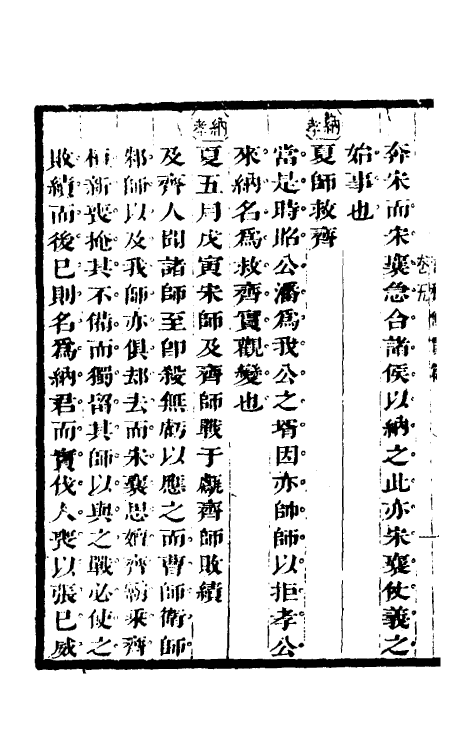 奔宋而宋襄急合諸侯以納之此亦宋襄仗義之
始事也
納孝
夏師救齊
當是時昭公潘為我公之壻因亦帥師以拒孝公
來納名為救齊實觀變也
納孝
夏五月戊寅宋師及齊師戰于甗齊師敗績
及齊人聞諸師至卽殺無虧以應之而曹師衛師
邾師以及我師亦俱却去而宋襄思嬗齊霸乘齊
桓新喪掩其不備而獨留其師以與之戰必使之
敗績而後已則名為納君而實伐人喪以張已威
卷五